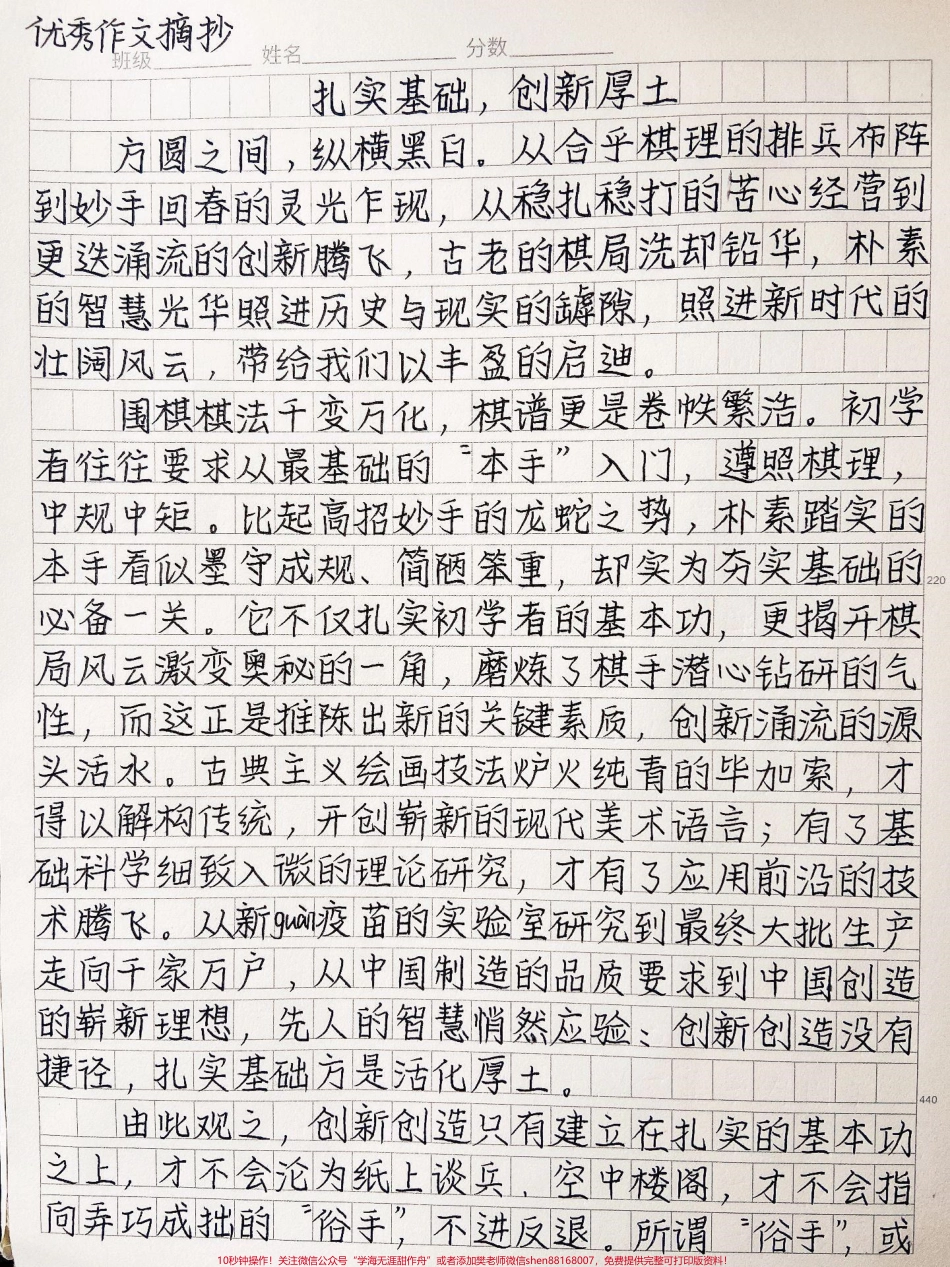 优秀作文摘抄
班级 姓名 分数
扎实基础，创新厚土
方圆之间，纵横黑白。从合乎棋理的排兵布阵
到妙手回春的灵光乍现，从稳扎稳打的苦心经营到
更迭涌流的创新腾飞，古老的棋局洗却铅华，朴素
的智慧光华照进历史与现实的罅隙，照进新时代的
壮阔风云，带给我们以丰盈的启迪。
围棋棋法千变万化，棋谱更是卷帙繁浩。初学
者往往要求从最基础的“本手”入门，遵照棋理，
中规中矩。比起高招妙手的龙蛇之势，朴素踏实的
本手看似墨守成规、简陋笨重，却实为夯实基础的
220
必备一关。它不仅扎实初学者的基本功，更揭开棋
局风云激变奥秘的一角，磨炼了棋手潜心钻研的气
性，而这正是推陈出新的关键素质，创新涌流的源
头活水。古典主义绘画技法炉火纯青的毕加索，才
得以解构传统，开创崭新的现代美术语言；有了基
础科学细致入微的理论研究，才有了应用前沿的技
术腾飞。从新guān疫苗的实验室研究到最终大批生产
走向千家万户，从中国制造的品质要求到中国创造
的崭新理想，先人的智慧悄然应验：创新创造没有
捷径，扎实基础方是活化厚土。
440
由此观之，创新创造只有建立在扎实的基本功
之上，才不会沦为纸上谈兵、空中楼阁，才不会指
向弄巧成拙的“俗手”，不进反退。所谓“俗手”，或
10秒钟操作！关注微信公众号“学海无涯甜作舟”或者添加樊老师微信shen88168007，免费提供完整可打印版资料！